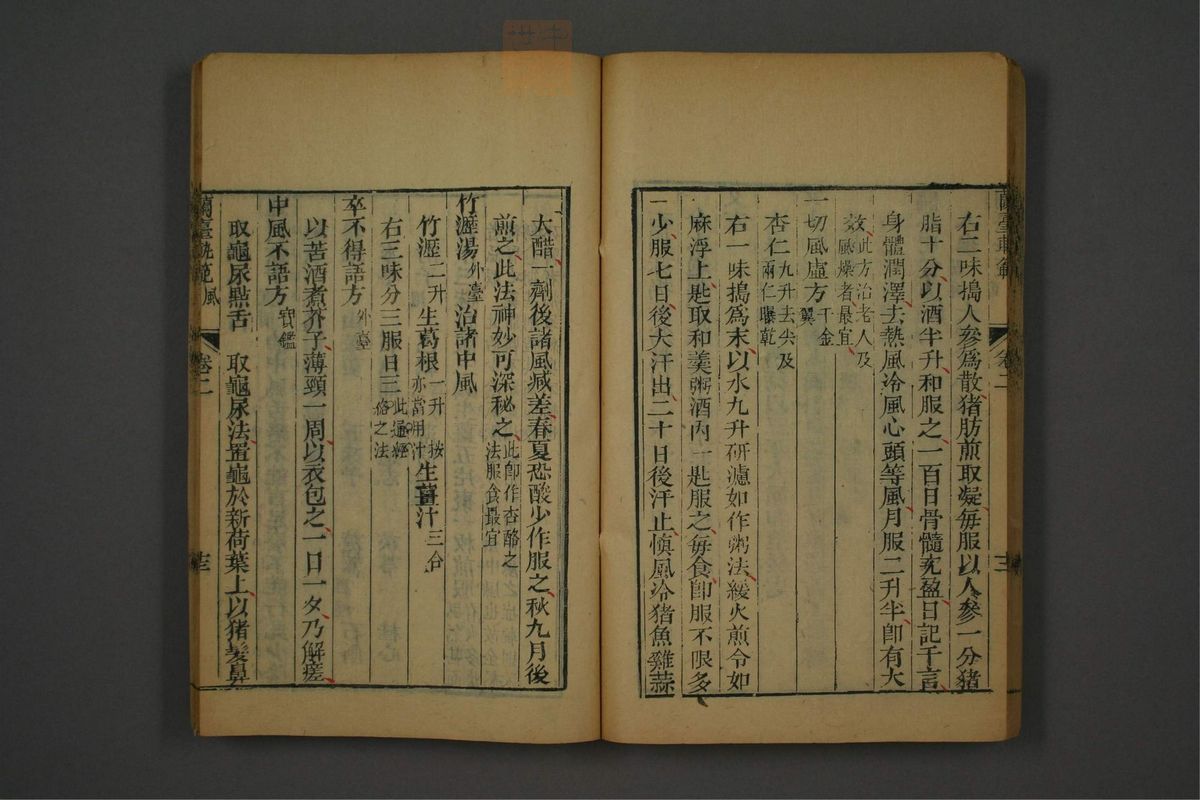 右二味搗人參爲散猪肪煎取凝毎服以人參一分猪
脂十分以酒半升和服之一百日骨髓充盈日記千言
身體潤澤去熱風冷風心頭等風月服二升半卽有大
效此方治老人及風燥者最宜
一切風虛方千金翼
杏仁九升去尖及兩仁曝乾
右一味搗爲末以水九升研濾如作粥法緩火煎令如
麻浮上匙取和羹粥酒内一匙服之毎食卽服不限多
少服七日後大汗出二十日後汗止愼風冷猪魚雞蒜
大醋一劑後諸風减差春夏恐酸少作服之秋九月後
煎之此法神妙可深秘之此卽作杏酪之法服食最宜
竹瀝湯外臺治諸中風
竹瀝二升 生葛根一升按亦當用汁生薑汁三合
右三味分三服日三此通經絡之法
卒不得語方外臺
以苦酒煮芥子薄頸一周以衣包之一日一夕乃解瘥
中風不語方寶鑑
取龜尿點舌 取龜尿法置龜於新荷葉上以猪髮鼻
蘭臺軌範 風 卷二